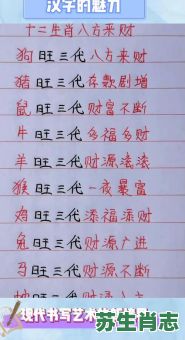 汉字的魅力
十二生肖八方来财
狗旺三代八方来财
猪旺三代存款剧增
鼠旺三代财富不断
牛旺三代多福多财
羊旺三代财源滚滚
猴旺三代一夜暴富
鸡旺三代添福添财
兔旺三代财源广进
马旺三代财源不断
现代书写艺术
苏生肖志